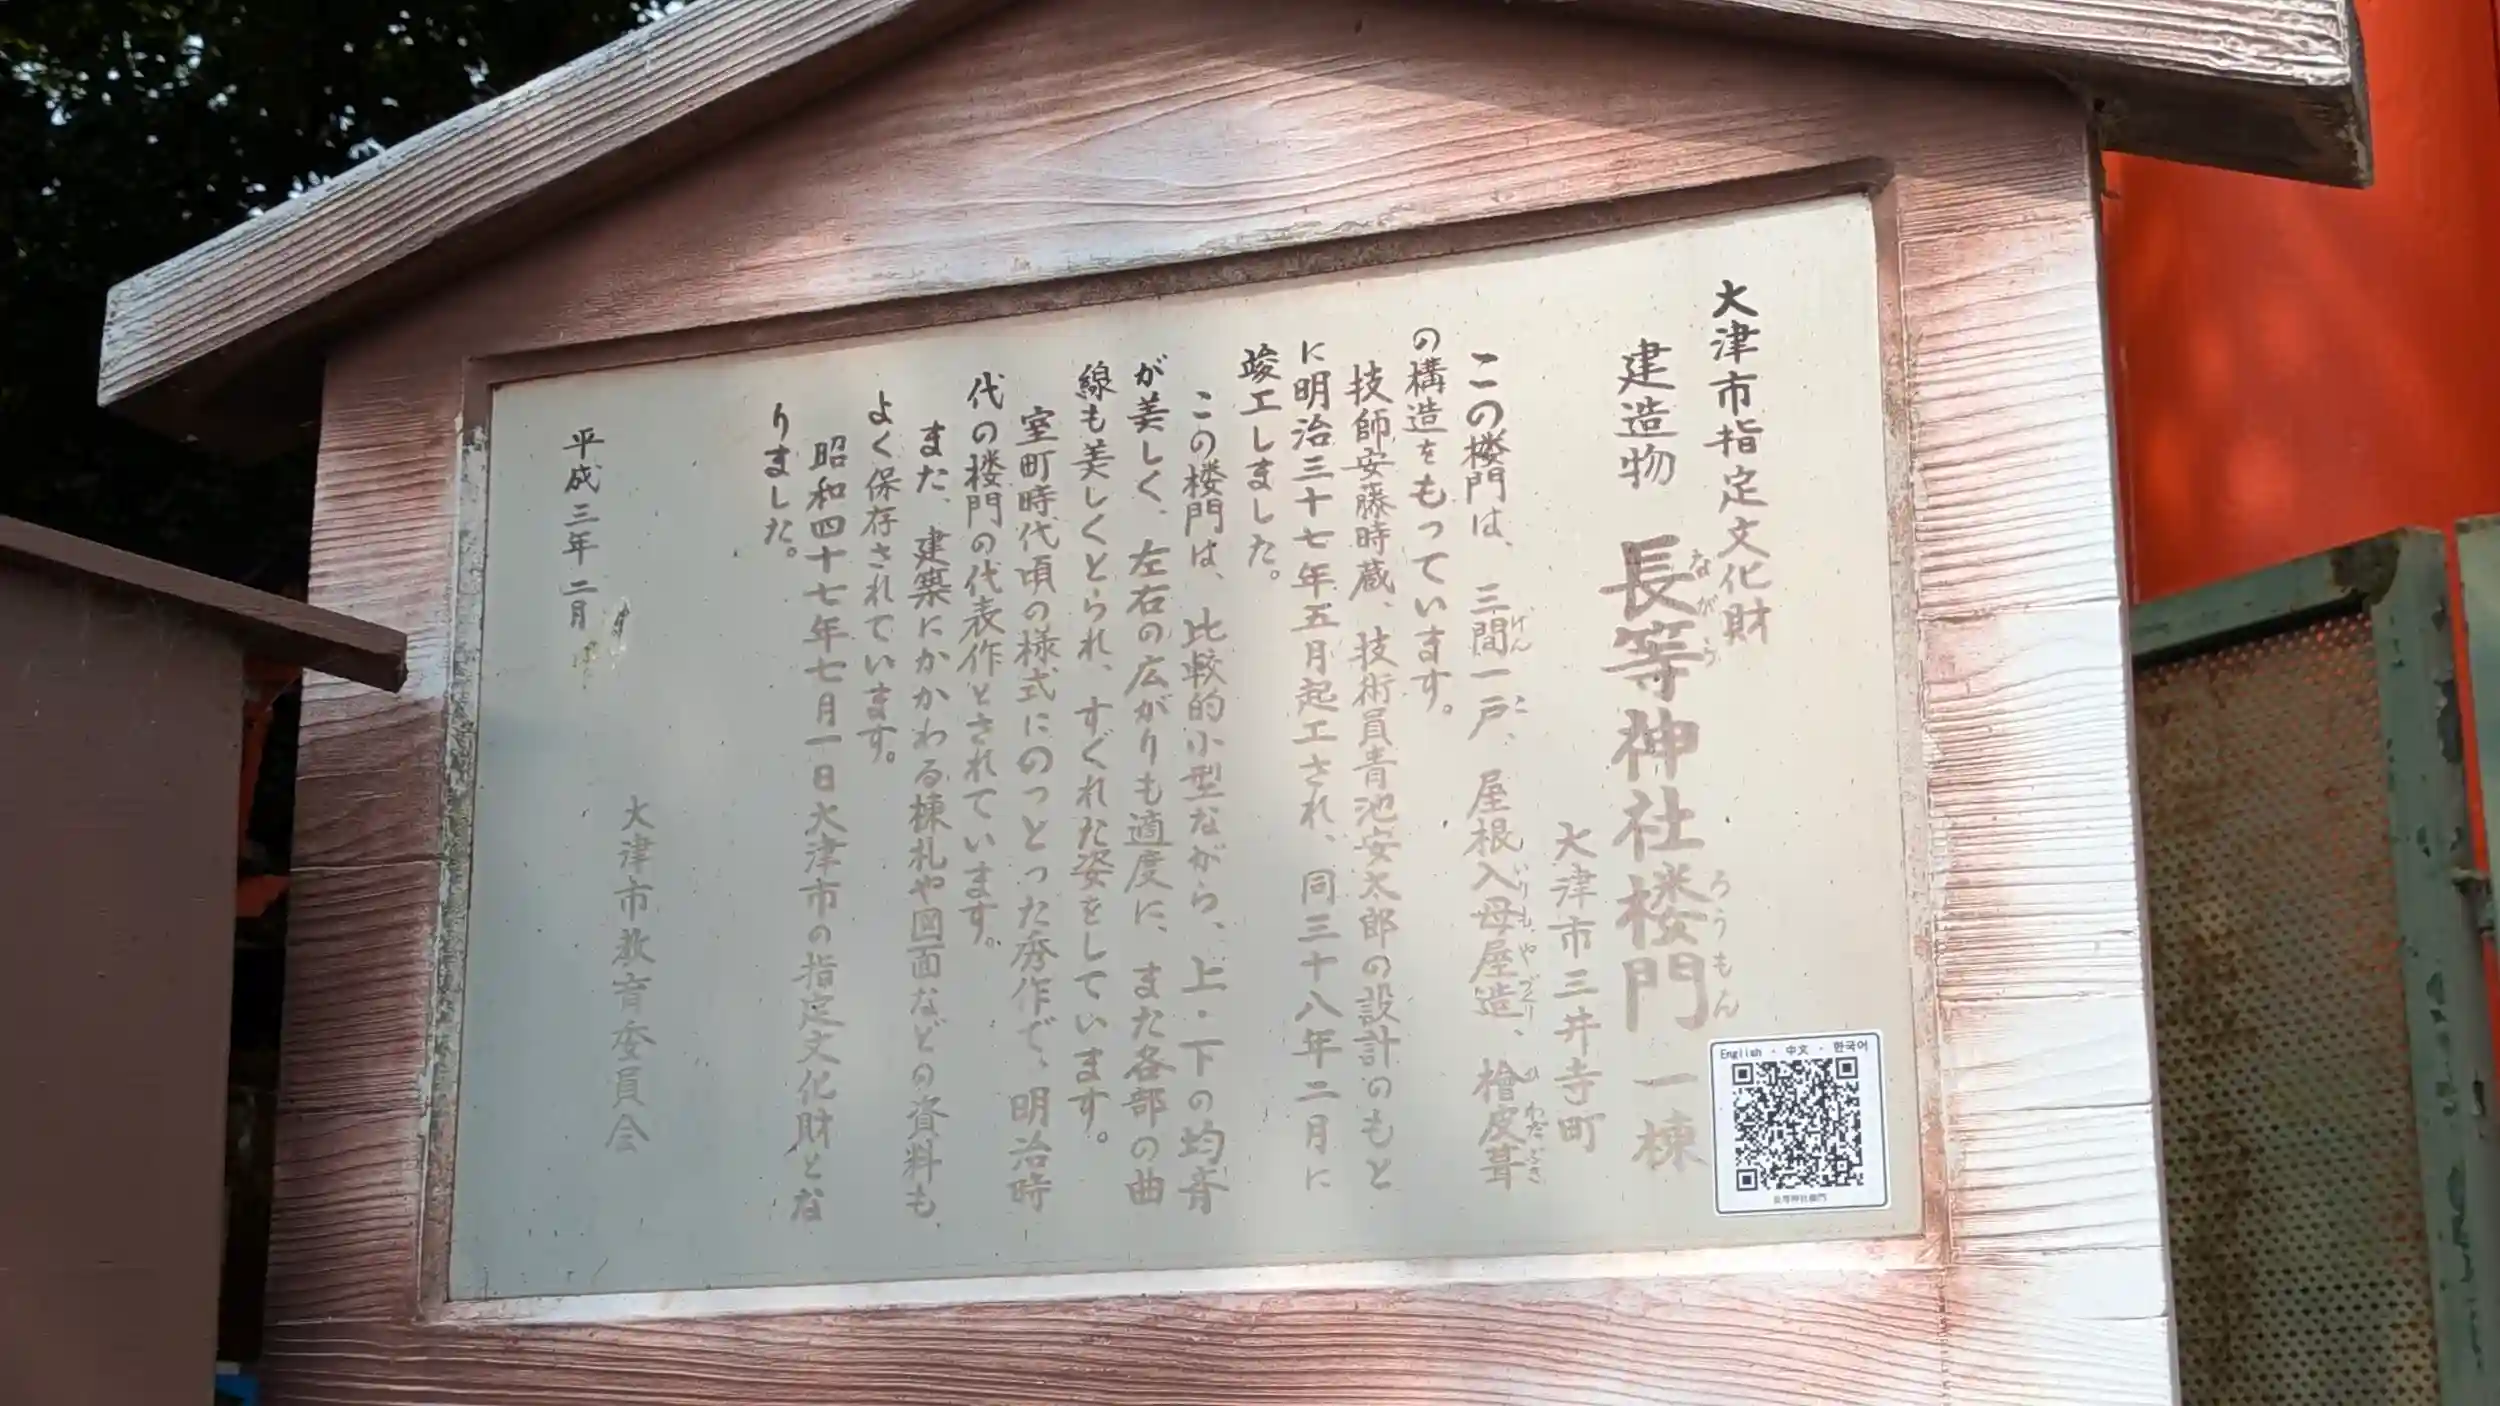 大津市指定文化財
建造物 長等神社楼門 一棟
ながら
ろうもん
大津市三井寺町
この楼門は、三間一戸、屋根入母屋造、檜皮葺
けん
こ
いりもやづくり
ひわだぶき
の構造をもっています。
技師安藤時蔵、技術員青池安太郎の設計のもと
に明治三十七年五月起工され、同三十八年二月に
竣工しました。
この楼門は、比較的小型ながら、上・下の均斉
が美しく、左右の広がりも適度に、また各部の曲
線も美しくとられ、すぐれた姿をしています。
室町時代頃の様式にのっとった秀作で、明治時
代の楼門の代表作とされています。
また、建築にかかわる棟札や図面などの資料も
よく保存されています。
昭和四十七年七月一日大津市の指定文化財とな
りました。
大津市教育委員会
平成三年二月
English ・ 中文 ・ 한국어
長等神社楼門